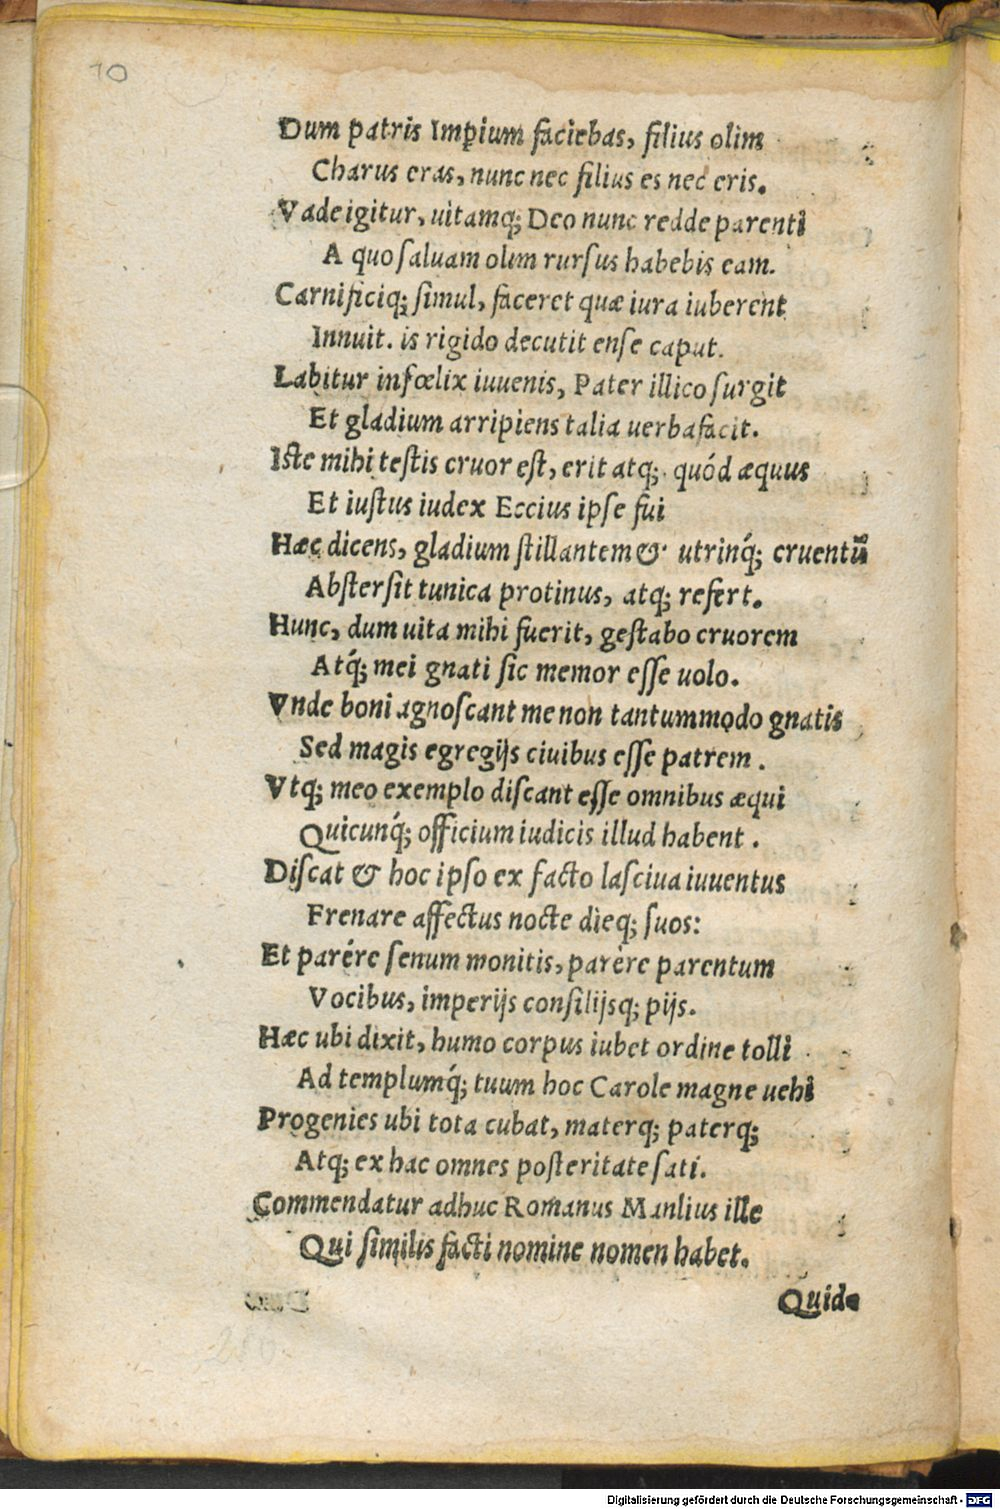 10
Dum patris Imꝑium faciebas, filius olim
Charus eras, nunc nec filius es nec eris.
Vade igitur, uitamq; Deo nunc redde parenti
A quo saluam olim rursus habebis eam.
Carnificiq; simul, faceret quæ iura iuberent
Innuit. is rigido decutit ense caput.
Labitur infœlix iuuenis, Pater illico surgit
Et gladium arripiens talia uerba facit.
Iste mihi testis cruor est, erit atq; quód æquus
Et iustus iudex Eccius ipse fui
Hæc dicens, gladium stillantem & utrinq́; cruentū
Abstersit tunica protinus, atq; refert.
Hunc, dum uita mihi fuerit, gestabo cruorem
Atq́; mei gnati sic memor esse uolo.
Vnde boni agnoscant me non tantummodo gnatis
Sed magis egregijs ciuibus esse patrem.
Vtq; meo exemplo discant esse omnibus æqui
Quicunq́; officium iudicis illud habent.
Discat & hoc ipso ex facto lasciua iuuentus
Frenare affectus nocte dieq; suos:
Et parére senum monitis, parére parentum
Vocibus, imperijs consilijsq; pijs.
Hæc ubi dixit, humo corpus iubet ordine tolli
Ad templumq́; tuum hoc Carole magne uehi
Progenies ubi tota cubat, materq; paterq;
Atq; ex hac omnes posteritate sati.
Commendatur adhuc Romanus Manlius ille
Qui similis facti nomine nomen habet.
Quid
Digitalisierung gefördert durch die Deutsche Forschungsgemeinschaft - DFG